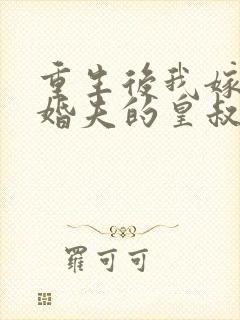 重生後我嫁
婚夫的皇叔
羅可可